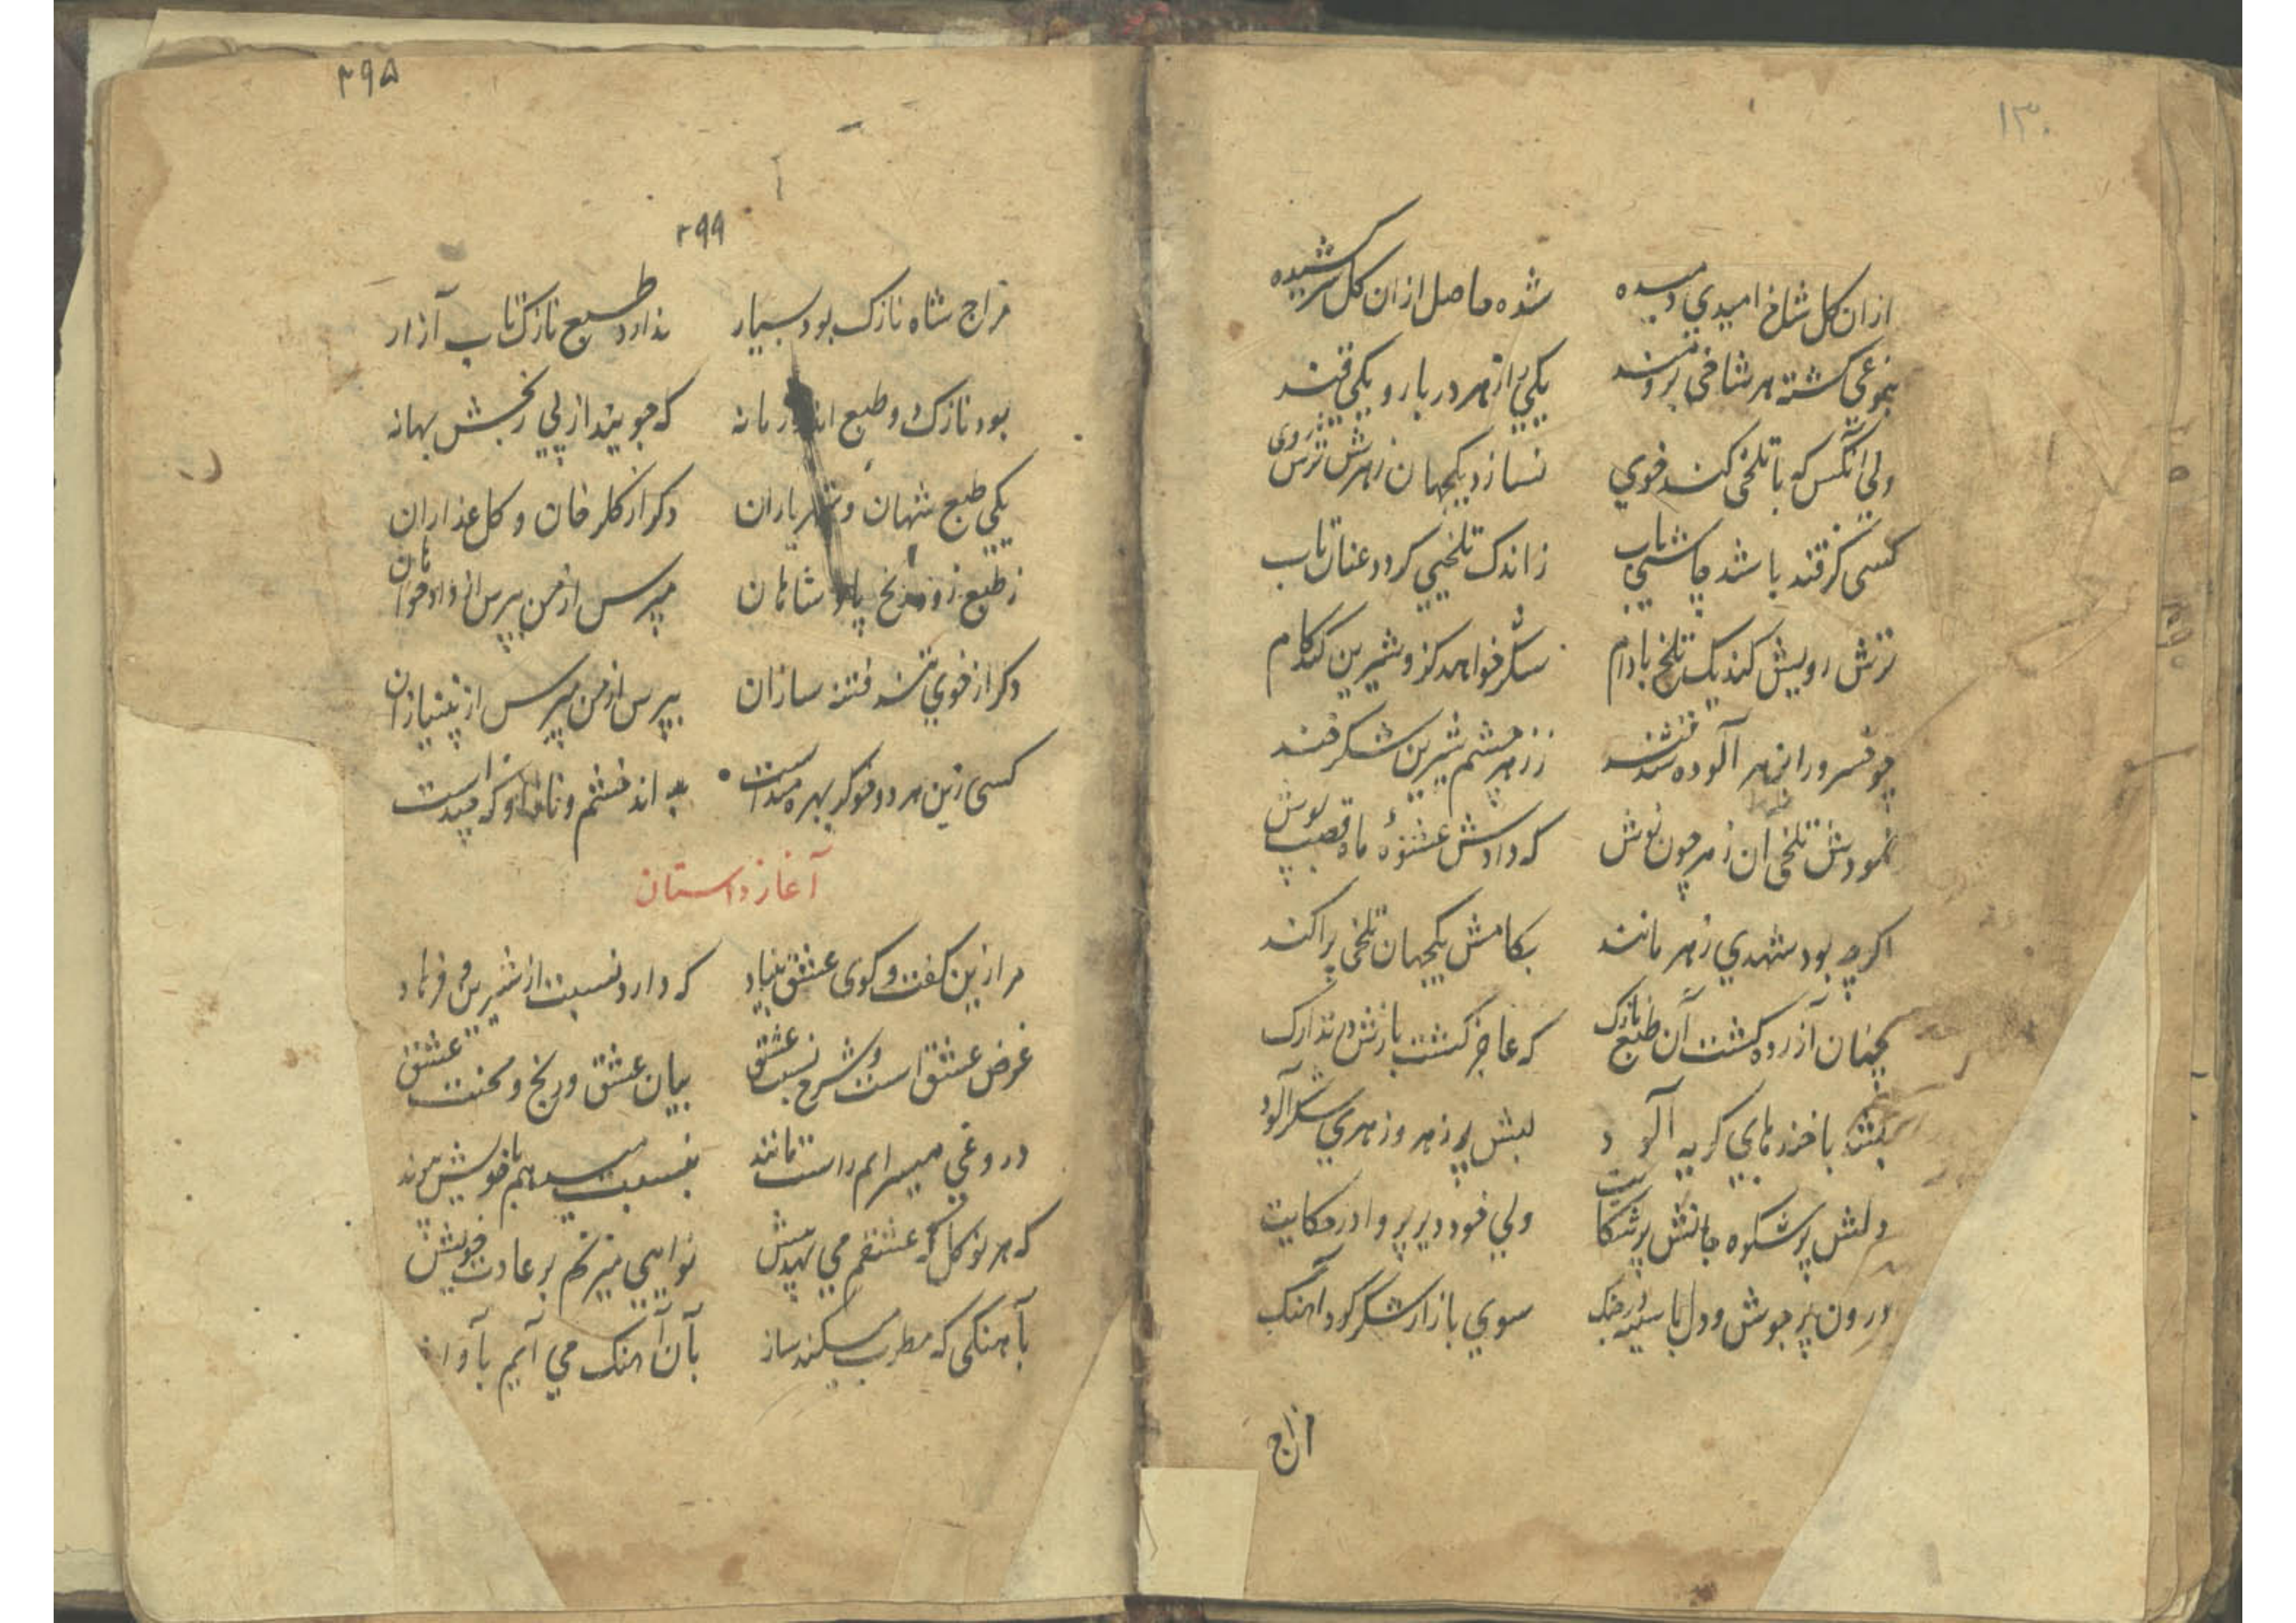 ۱۳۰
ازان کل شاخ امیدي دمیده شده حاصل ازان کل سرکشیده
بنوعي کشته هر شاخي برومند یکي را زهر در بار و یکي قند
ولي آنکس که با تلخي کند خوي نسازد یکجهان زهرش ترش روی
کسی کز قند باشد چاشني یاب ز اندک تلخیي کردد عنان تاب
ترش رویش کند یک تلخ بادام شکر خواهد کزو شیرین کند کام
چو خسرو را بزهر آلوده شد قند ز زهر چشم شیرین شکرخند
نمودش تلخی ان زهر چون نوش که دادش عشوۀ ماه قصب پوش
اکرچه بود شهدي زهر مانند بکامش یکجهان تلخی پراکند
چنان آزرده کشت آن طبع نازک که عاجز کشت نازش در تدارک
بشد با خنده هایي کریه آلود لبش پر زهر و زهري شکر آلود
دلش پر شکوه جانش پر شکایت ولي خود دیر پروا در حکایت
درون پر جوش و دل با سینه در جنک سوي بازار شکر کرد آهنک
مزاج
۲۹۵
۲۹۹
مزاج شاه نازک بود بسیار ندارد طبع نازک تاب آزار
بود نازک دو طبع اندر زمانه که جویند از پي رنجش بهانه
یکي طبع شهان و شهریاران دکر از کلرخان و کل عذاران
ز طبع زود رنج پادشاهان مپرس از من بپرس از دادخواهان
دکر از خوي تند فتنه سازان بپرس از من مپرس از بي نیازان
کسی زین هر دو خو کر بهره مند است بداند خشم و ناز او که چند است
آغاز داستان
مرا زین کفت و کوی عشق بنیاد که دارد نسبت از شیرین و فرهاد
غرض عشق است و شرح نسبت عشق بیان عشق و رنج و محنت عشق
دروغي میسرایم راست مانند بنسبت میدهم با خویش پیوند
که هر نو کل که عشقم مي نهد پیش نوایي میزنم بر عادت خویش
بآهنکی که مطرب میکند ساز بآن آهنک مي آیم بآواز